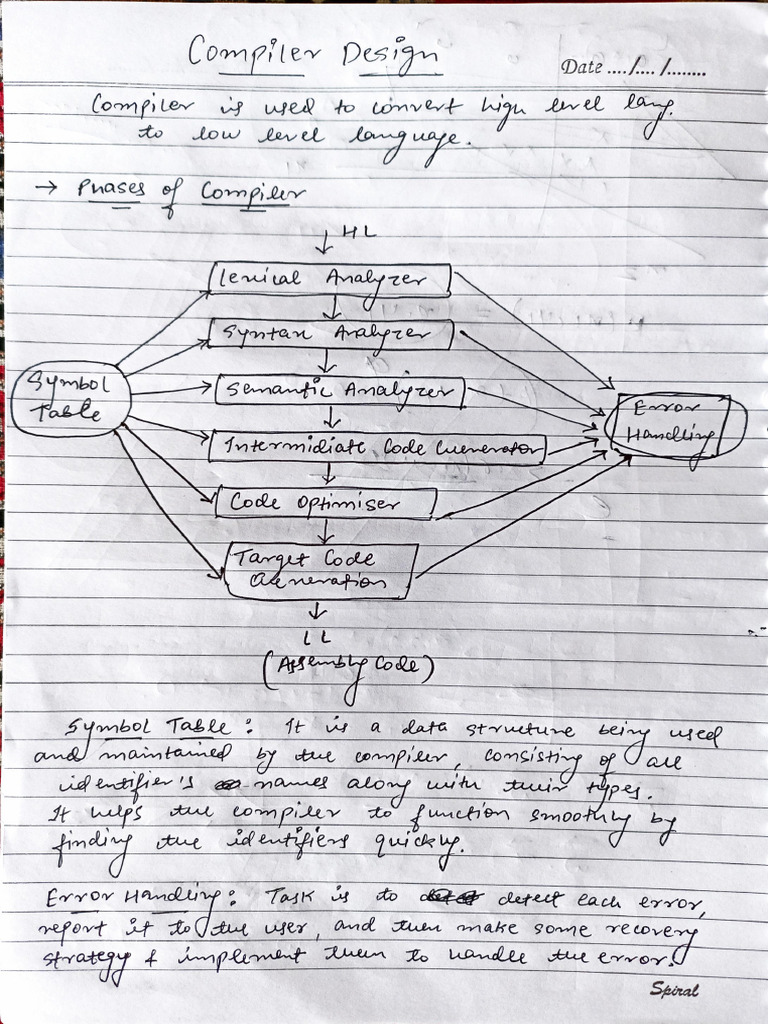 Compiler Design
Date ..../..../........
Compiler is used to convert high level lang.
to low level language.
→ Phases of Compiler
↓ HL
Lexical Analyzer
Syntax Analyzer
Symbol
Table
Semantic Analyzer
Error
Handling
Intermidiate Code Generator
Code Optimiser
Target Code
Generation
LL
(Assembly Code)
Symbol Table : It is a data structure being used
and maintained by the compiler, consisting of all
identifier's names along with their types.
It helps the compiler to function smoothly by
finding the identifiers quickly.
Error Handling : Task is to detect each error,
report it to the user, and then make some recovery
strategy & implement them to handle the error.
Spiral